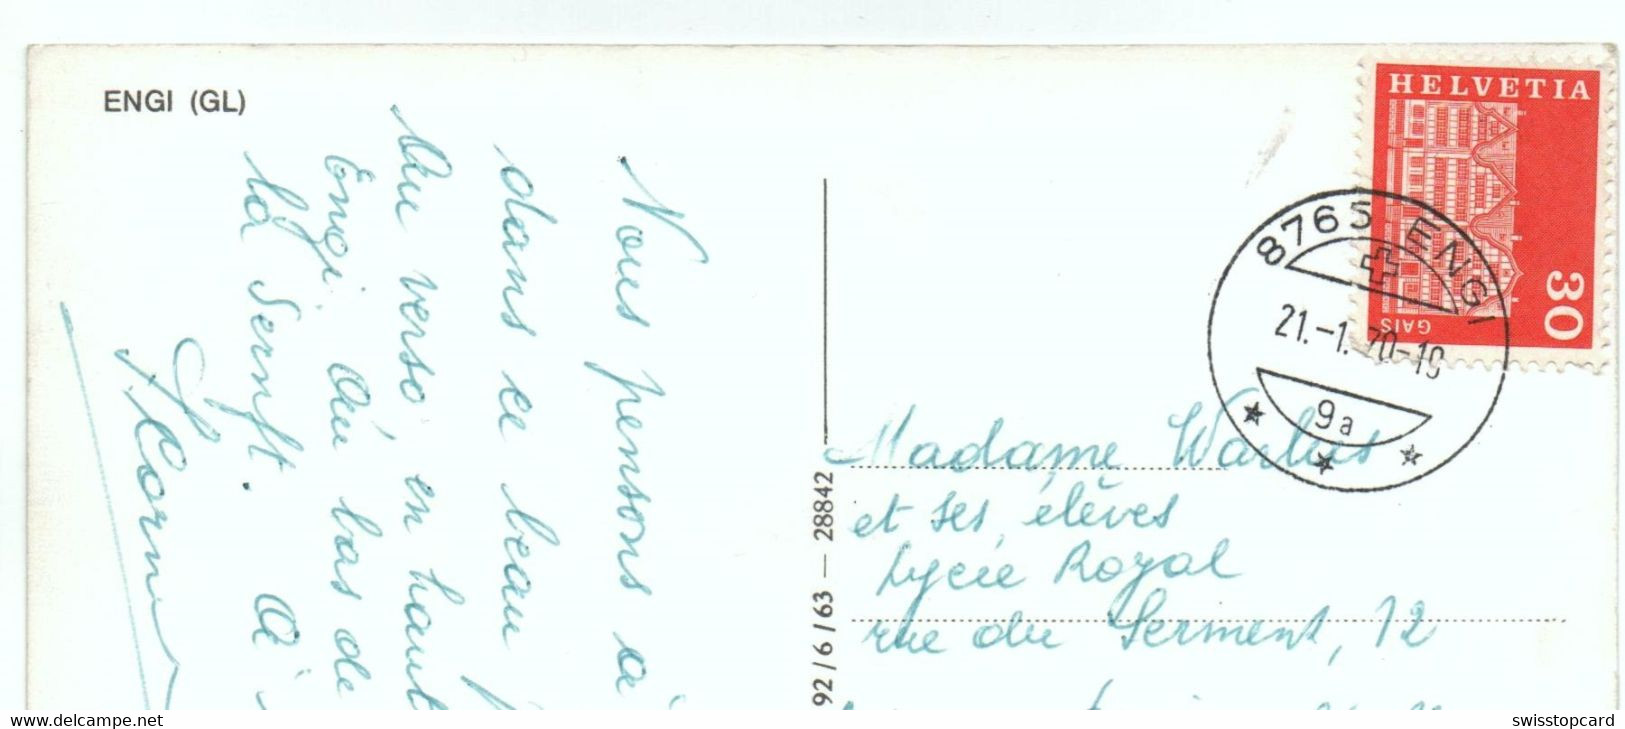 ENGI (GL)
HELVETIA
30
GAIS
8765 ENGI
21.-1.70-19
9a
Nous pensons à
dans ce beau
Au verso, en haut
Engi. Au bas de
la Sernft. à
Madame Warlus
et ses élèves
Lycée Royal
rue du Serment, 12
92/6/63 — 28842
www.delcampe.net
swisstopcard